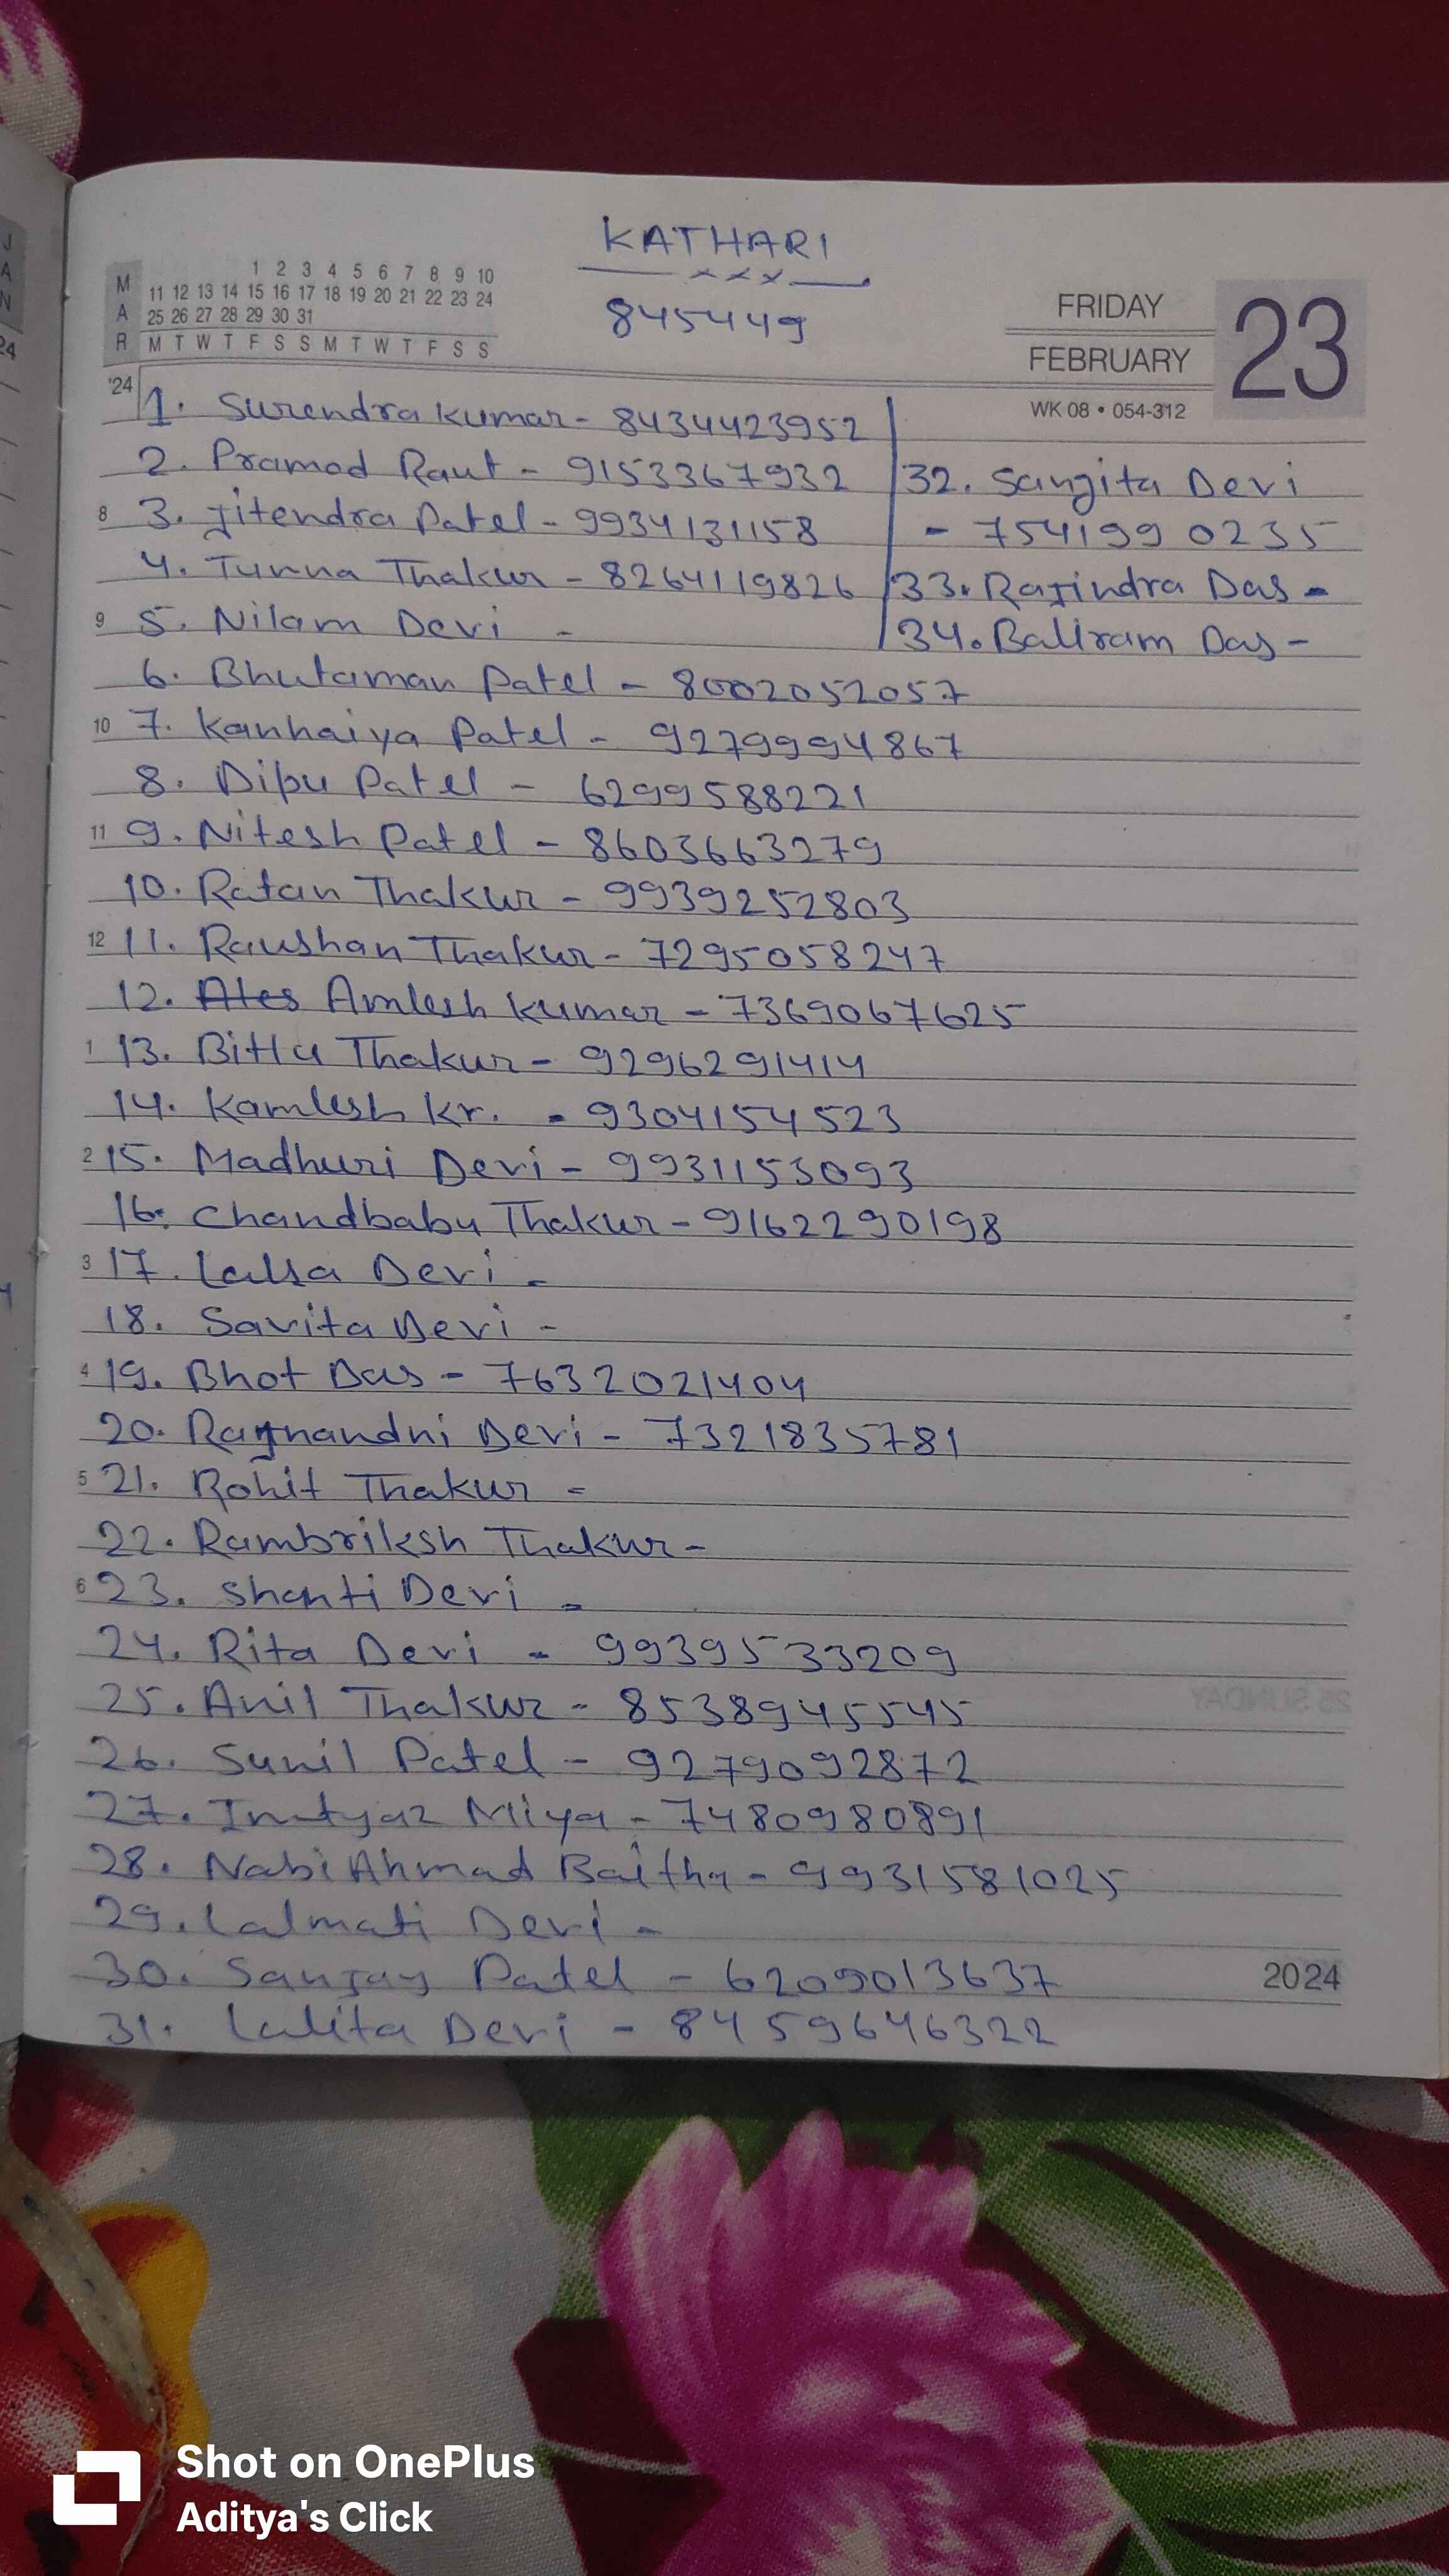 KATHARI
845449
M A R
1 2 3 4 5 6 7 8 9 10
11 12 13 14 15 16 17 18 19 20 21 22 23 24
25 26 27 28 29 30 31
M T W T F S S M T W T F S S
'24
FRIDAY
FEBRUARY
23
WK 08 • 054-312
1. Surendra kumar - 8434423952
2. Pramod Raut - 9153367932
8 3. Jitendra Patel - 9934131158
4. Tunna Thakur - 8264119826
9 5. Nilam Devi -
6. Bhutaman Patel - 8002052057
10 7. Kanhaiya Patel - 9279994867
8. Dipu Patel - 6299588221
11 9. Nitesh Patel - 8603663279
10. Ratan Thakur - 9939252803
12 11. Raushan Thakur - 7295058247
12. Ates Amlesh kumar - 7369067625
1 13. Bittu Thakur - 9296291414
14. Kamlesh kr. - 9304154523
2 15. Madhuri Devi - 9931153093
16. Chandbabu Thakur - 9162290198
3 17. Lalsa Devi -
18. Savita Devi -
4 19. Bhot Das - 7632021404
20. Rajnandni Devi - 7321835781
5 21. Rohit Thakur -
22. Rambriksh Thakur -
6 23. Shanti Devi -
24. Rita Devi - 9939533209
25. Anil Thakur - 8538945545
26. Sunil Patel - 9279092872
27. Imtyaz Miya - 7480980891
28. Nabi Ahmad Baitha - 9931581025
29. Lalmati Devi -
30. Sanjay Patel - 6209013637
31. Lalita Devi - 8459646322
32. Sangita Devi
- 7541990235
33. Rajindra Das -
34. Baliram Das -
2024
Shot on OnePlus
Aditya's Click